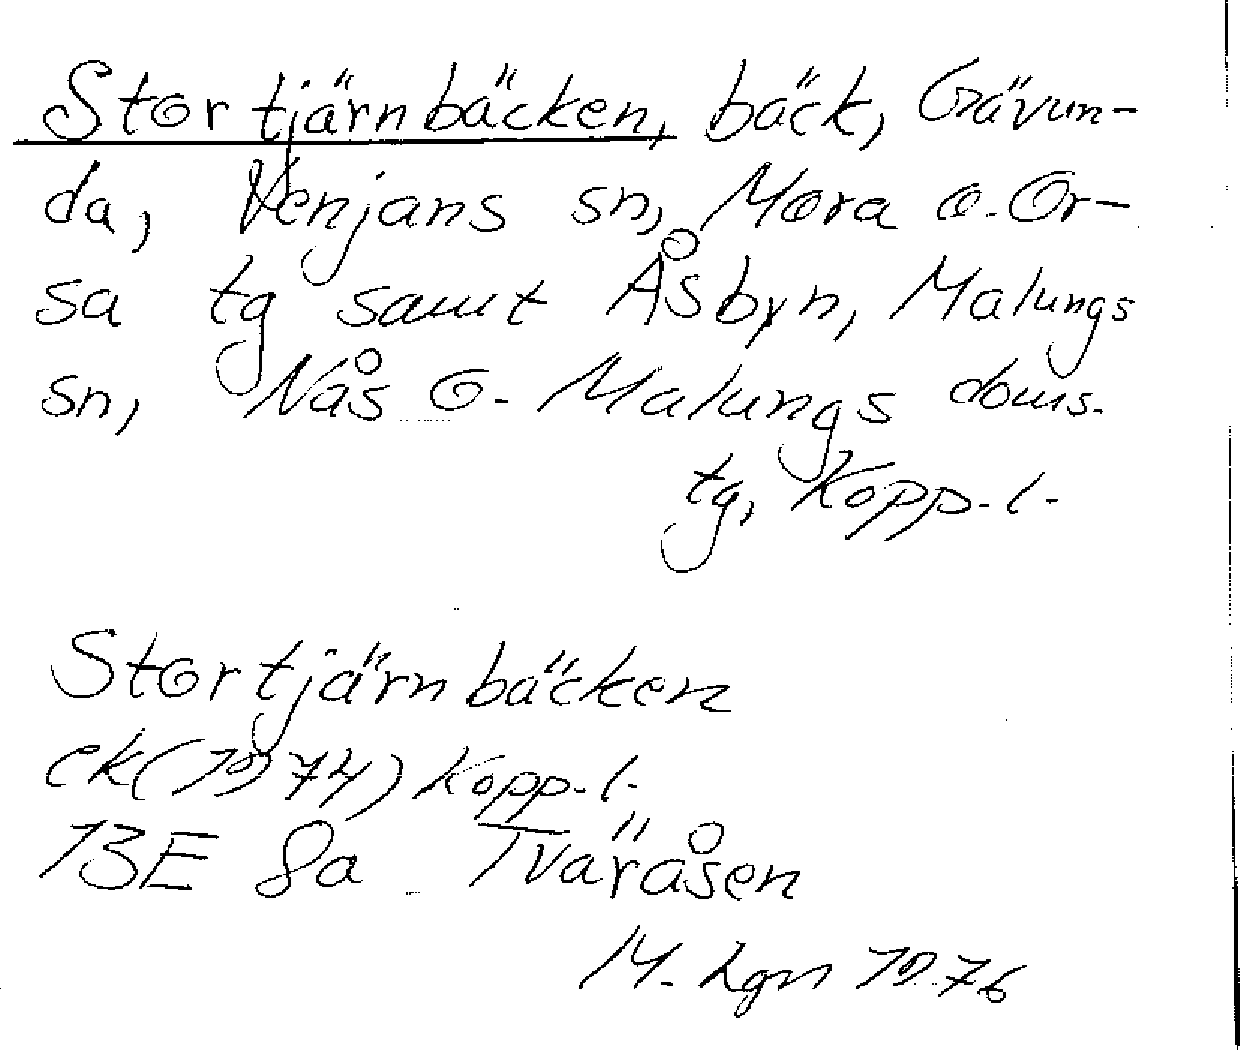 Stortjärnbäcken, bäck, Grävun-
da, Venjans sn, Mora o. Or-
sa tg samt Åsbyn, Malungs
sn, Nås o. Malungs doms.
tg, Kopp. l.
Stortjärnbäcken
ek (1974) Kopp. l.
13E 8a Tväråsen
M. Lgn 1976